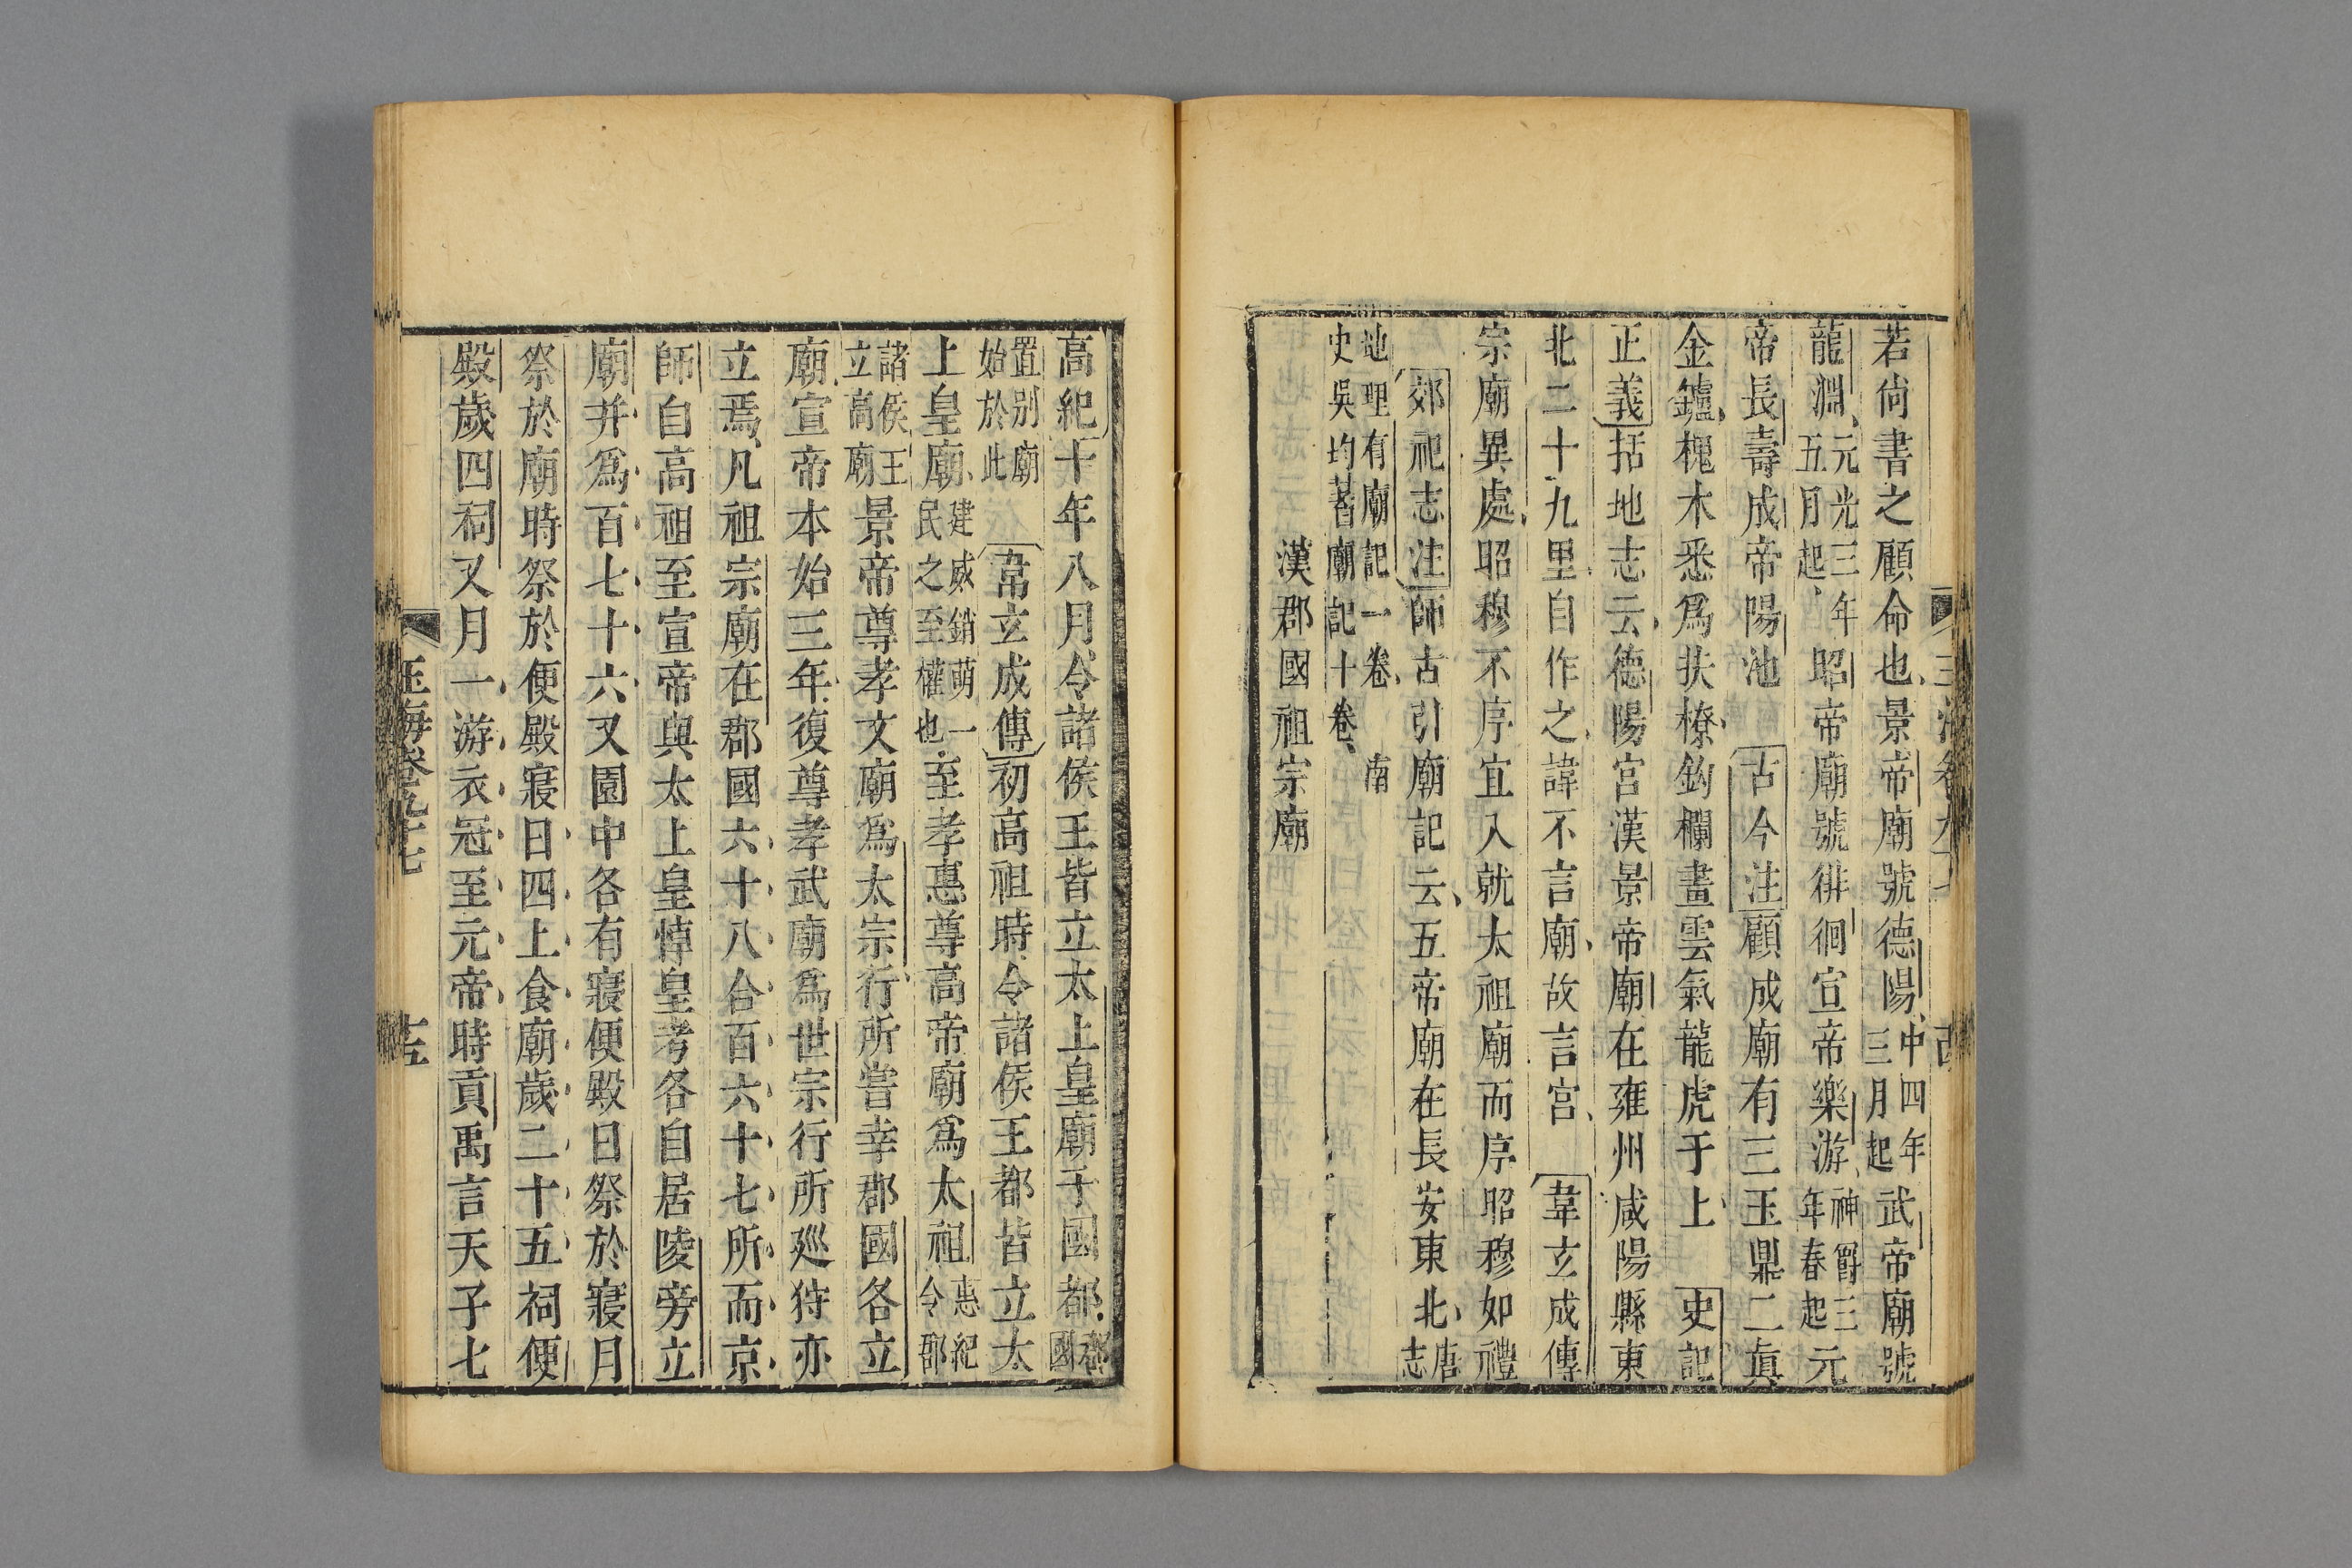 若尚書之顧命也景帝廟號德陽中四年三月起武帝廟號
龍淵元光三年五月起昭帝廟號徘徊宣帝樂游神爵三年春起元
帝長壽成帝陽池 古今注顧成廟有三玉鼎二真
金鑪槐木悉爲扶橑鈎欄畫雲氣龍虎于上 史記
正義括地志云德陽宮漢景帝廟在雍州咸陽縣東
北二十九里自作之諱不言廟故言宮 韋玄成傳
宗廟異處昭穆不序宜入就太祖廟而序昭穆如禮
郊祀志注師古引廟記云五帝廟在長安東北唐志
地理有廟記一卷 南史吳均著廟記十卷
漢郡國祖宗廟
高紀十年八月令諸侯王皆立太上皇廟于國都郡國
置別廟始於此 韋玄成傳初高祖時令諸侯王都皆立太
上皇廟建威銷萌一民之至權也至孝惠尊高帝廟爲太祖惠紀令郡
諸侯王立高廟景帝尊孝文廟爲太宗行所嘗幸郡國各立
廟宣帝本始三年復尊孝武廟爲世宗行所巡狩亦
立焉凡祖宗廟在郡國六十八合百六十七所而京
師自高祖至宣帝與太上皇悼皇考各自居陵旁立
廟并爲百七十六又園中各有寢便殿日祭於寢月
祭於廟時祭於便殿寢日四上食廟歲二十五祠便
殿歲四祠又月一游衣冠至元帝時貢禹言天子七
玉海卷九十七 十五